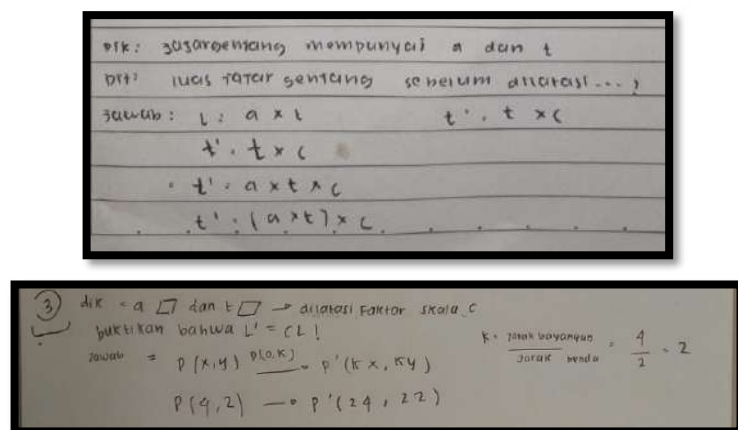 Dik: Jajargenjang mempunyai a dan t
Dit: luas jajar genjang sebelum dilatasi...?
Jawab: L: a x t t' = t x c
t' = t x c
= t' = a x t x c
t' = (a x t) x c
3 dik = a ▱ dan t ▱ → dilatasi Faktor skala c
buktikan bahwa L' = CL !
Jawab = P(x,y) D(0,K) → P'(Kx, Ky)
K = Jarak bayangan / Jarak benda = 4/2 = 2
P(4,2) → P'(24, 22)